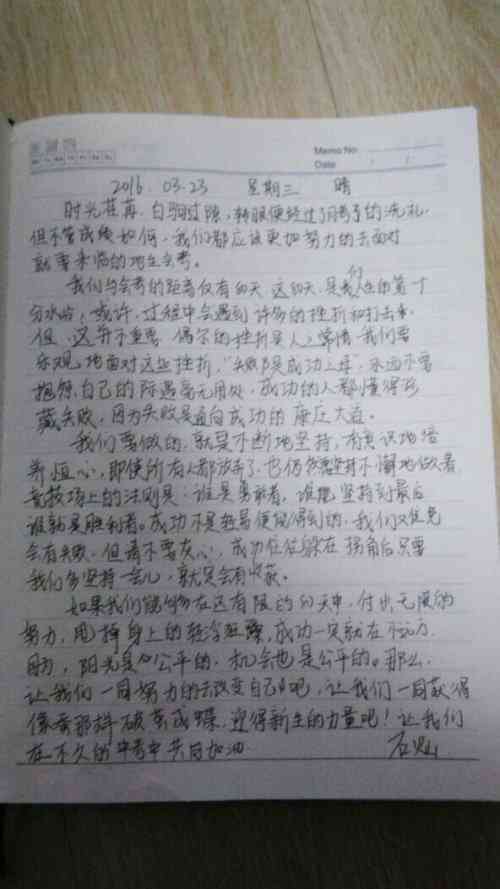 Memo No.
Date / /
2016.03.23 星期三 晴
时光荏苒,白驹过隙,转眼便经过了月考的洗礼.
但不管成绩如何,我们都应该更加努力的去面对
就要来临的地生会考。
我们与会考的距离仅有80天,这80天,是我们人生的第一个
分水岭,或许,过程中会遇到许多的挫折和打击.
但,这并不重要,偶尔的挫折是人之常情.我们要
乐观地面对这些挫折,"失败是成功之母",永远不要
抱怨自己的际遇毫无用处,成功的人都懂得珍
藏失败,因为失败是通向成功的康庄大道。
我们要做的,就是不断地坚持,有意识地培
养恒心,即使所有人都放弃了,也仍然坚持不懈地做着
竞技场上的法则是:谁是勇敢者,谁把坚持到最后
谁就是胜利者。成功不是轻易便能得到的,我们难免
会有失败,但请不要灰心,成功往往躲在拐角后只要
我们多坚持一会儿,就会有收获。
如果我们能够在这有限的80天中,付出无限的
努力,甩掉身上的轻浮,成功一定就在不远方.
因为,阳光是公平的,机会也是公平的。那么,
让我们一同努力的去改变自己吧,让我们一同获得
像蚕那样破茧成蝶,迎得新生的力量吧!让我们
在不久的中考中共同加油
石灿